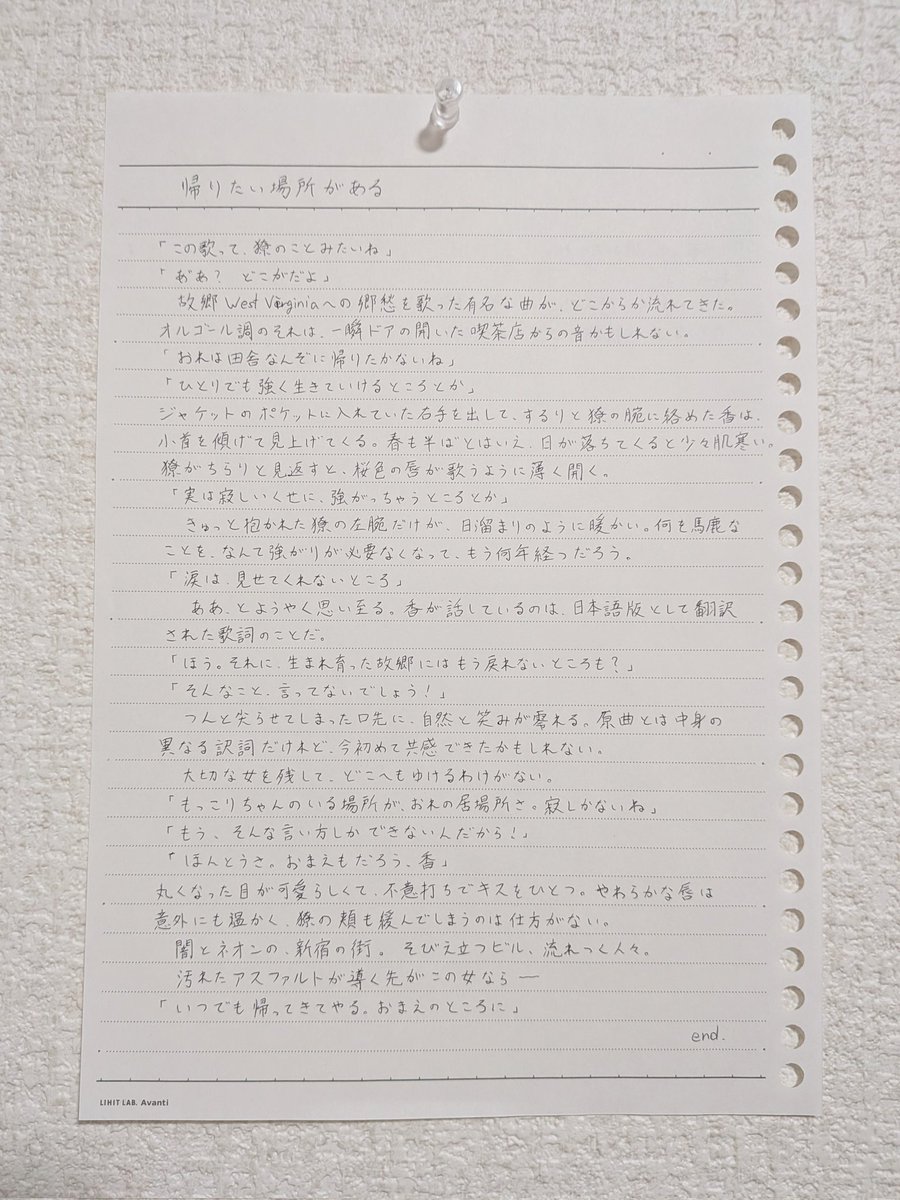 帰りたい場所がある
「この歌って、獠のことみたいね」
「あ゙あ？　どこがだよ」
故郷West Virginiaへの郷愁を歌った有名な曲が、どこからか流れてきた。
オルゴール調のそれは、一瞬ドアの開いた喫茶店からの音かもしれない。
「おれは田舎なんぞに帰りたかないね」
「ひとりでも強く生きていけるところとか」
ジャケットのポケットに入れていた右手を出して、するりと獠の腕に絡めた香は、
小首を傾げて見上げてくる。春も半ばとはいえ、日が落ちてくると少々肌寒い。
獠がちらりと見返すと、桜色の唇が歌うように薄く開く。
「実は寂しいくせに、強がっちゃうところとか」
きゅっと抱かれた獠の左腕だけが、日溜まりのように暖かい。何を馬鹿な
ことを、なんて強がりが必要なくなって、もう何年経つだろう。
「涙は、見せてくれないところ」
ああ、とようやく思い至る。香が話しているのは、日本語版として翻訳
された歌詞のことだ。
「ほう。それに、生まれ育った故郷にはもう戻れないところも？」
「そんなこと、言ってないでしょう！」
つんと尖らせてしまった口先に、自然と笑みが零れる。原曲とは中身の
異なる訳詞だけれど、今初めて共感できたかもしれない。
大切な女を残して、どこへもゆけるわけがない。
「もっこりちゃんのいる場所が、おれの居場所さ。寂しかないね」
「もう、そんな言い方しかできないんだから！」
「ほんとうさ。おまえもだろう、香」
丸くなった目が可愛らしくて、不意打ちでキスをひとつ。やわらかな唇は
意外にも温かく、獠の頬も緩んでしまうのは仕方がない。
闇とネオンの、新宿の街。そびえ立つビル、流れつく人々。
汚れたアスファルトが導く先がこの女なら──
「いつでも帰ってきてやる。おまえのところに」
end.
LIHIT LAB. Avanti